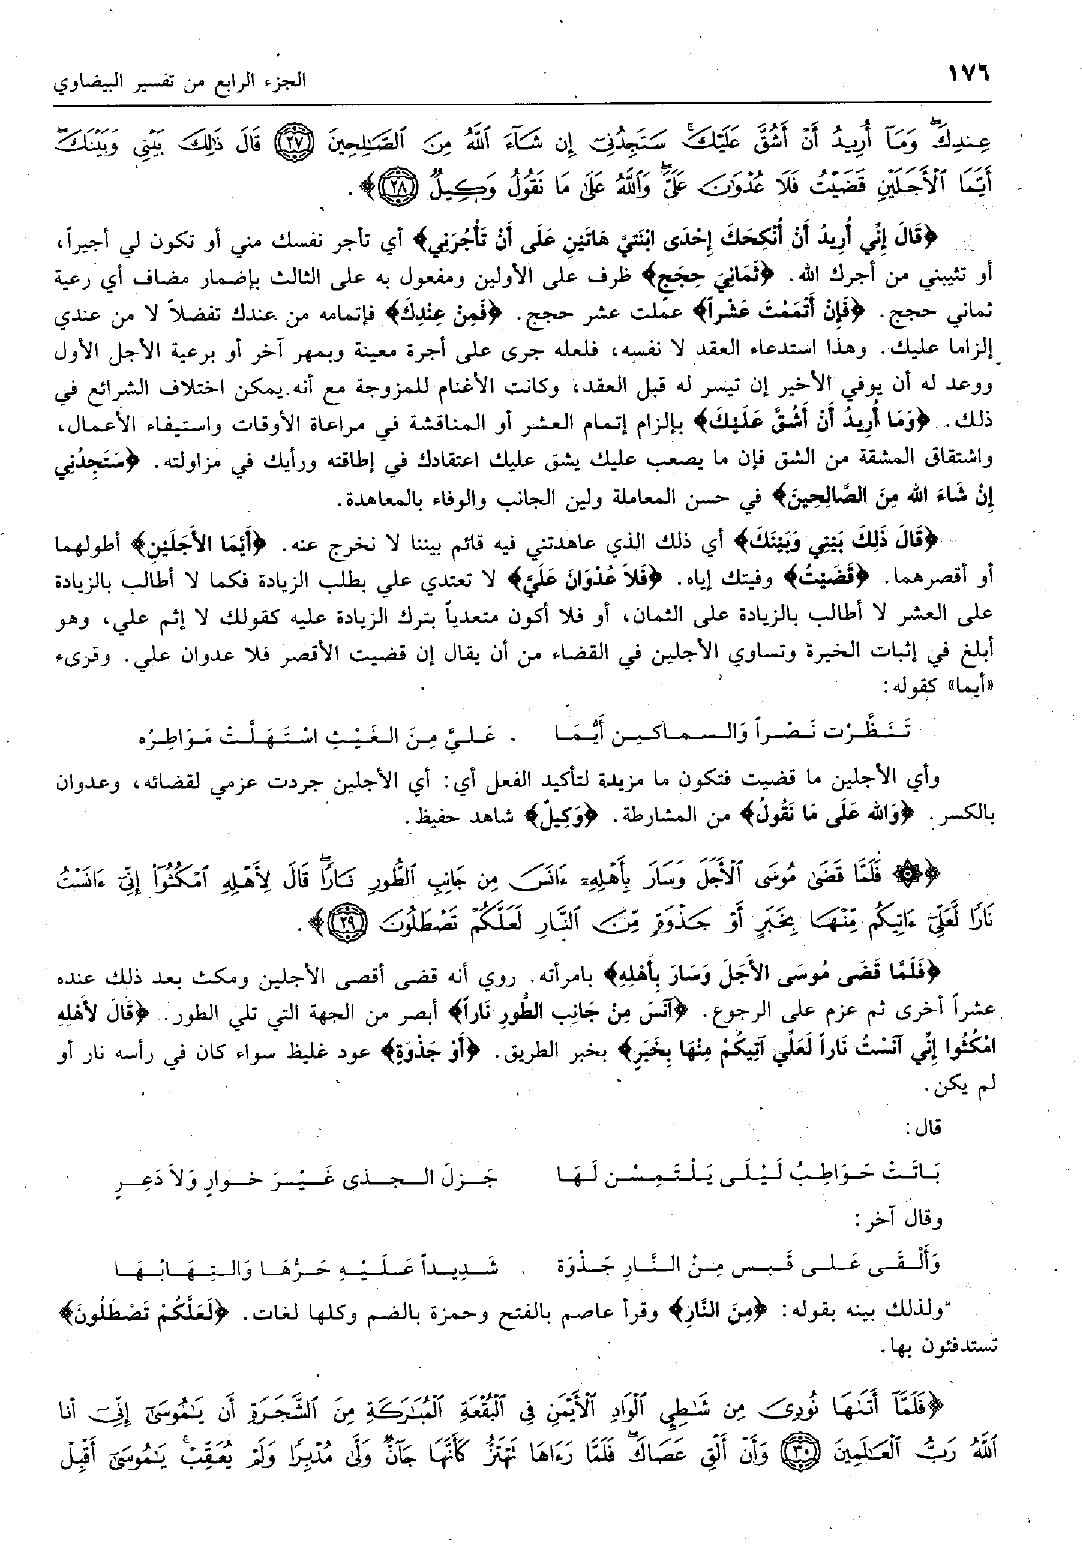 ١٧٦
الجزء الرابع من تفسير البيضاوي
عِندِكَ وَمَآ أُرِيدُ أَنْ أَشُقَّ عَلَيْكَ سَتَجِدُنِىٓ إِن شَآءَ ٱللَّهُ مِنَ ٱلصَّٰلِحِينَ ﴿٢٧﴾ قَالَ ذَٰلِكَ بَيْنِى وَبَيْنَكَ
أَيَّمَا ٱلْأَجَلَيْنِ قَضَيْتُ فَلَا عُدْوَٰنَ عَلَىَّ وَٱللَّهُ عَلَىٰ مَا نَقُولُ وَكِيلٌ ﴿٢٨﴾.
﴿قَالَ إِنِّي أُرِيدُ أَنْ أُنْكِحَكَ إِحْدَى ابْنَتَيَّ هَاتَيْنِ عَلَى أَنْ تَأْجُرَنِي﴾ أي تأجر نفسك مني أو تكون لي أجيراً،
أو تثيبني من أجرك الله. ﴿ثَمَانِيَ حِجَجٍ﴾ ظرف على الأولين ومفعول به على الثالث بإضمار مضاف أي رعية
ثماني حجج. ﴿فَإِنْ أَتْمَمْتَ عَشْراً﴾ عملت عشر حجج. ﴿فَمِنْ عِنْدِكَ﴾ فإتمامه من عندك تفضلاً لا من عندي
إلزاما عليك. وهذا استدعاء العقد لا نفسه، فلعله جرى على أجرة معينة وبمهر آخر أو برعية الأجل الأول
ووعد له أن يوفي الأخير إن تيسر له قبل العقد، وكانت الأغنام للمزوجة مع أنه يمكن اختلاف الشرائع في
ذلك. ﴿وَمَا أُرِيدُ أَنْ أَشُقَّ عَلَيْكَ﴾ بإلزام إتمام العشر أو المناقشة في مراعاة الأوقات واستيفاء الأعمال،
واشتقاق المشقة من الشق فإن ما يصعب عليك يشق عليك اعتقادك في إطاقته ورأيك في مزاولته. ﴿سَتَجِدُنِي
إِنْ شَاءَ الله مِنَ الصَّالِحِينَ﴾ في حسن المعاملة ولين الجانب والوفاء بالمعاهدة.
﴿قَالَ ذَلِكَ بَيْنِي وَبَيْنَكَ﴾ أي ذلك الذي عاهدتني فيه قائم بيننا لا نخرج عنه. ﴿أَيَّمَا الأَجَلَيْنِ﴾ أطولهما
أو أقصرهما. ﴿قَضَيْتُ﴾ وفيتك إياه. ﴿فَلاَ عُدْوَانَ عَلَيَّ﴾ لا تعتدي علي بطلب الزيادة فكما لا أطالب بالزيادة
على العشر لا أطالب بالزيادة على الثمان، أو فلا أكون متعدياً بترك الزيادة عليه كقولك لا إثم علي، وهو
أبلغ في إثبات الخيرة وتساوي الأجلين في القضاء من أن يقال إن قضيت الأقصر فلا عدوان علي. وقرىء
«أيما» كقوله:
تَنَظَّرْت نَصْراً وَالسماكين أَيُّمَا عَليَّ مِنَ الغَيْثِ اسْتَهَلَّتْ مَوَاطِرُه
وأي الأجلين ما قضيت فتكون ما مزيدة لتأكيد الفعل أي: أي الأجلين جردت عزمي لقضائه، وعدوان
بالكسر. ﴿وَالله عَلَى مَا نَقُولُ﴾ من المشارطة. ﴿وَكِيلٌ﴾ شاهد حفيظ.
﴿۞ فَلَمَّا قَضَىٰ مُوسَى ٱلْأَجَلَ وَسَارَ بِأَهْلِهِۦٓ ءَانَسَ مِن جَانِبِ ٱلطُّورِ نَارًا قَالَ لِأَهْلِهِ ٱمْكُثُوٓا۟ إِنِّىٓ ءَانَسْتُ
نَارًا لَّعَلِّىٓ ءَاتِيكُم مِّنْهَا بِخَبَرٍ أَوْ جَذْوَةٍ مِّنَ ٱلنَّارِ لَعَلَّكُمْ تَصْطَلُونَ ﴿٢٩﴾﴾.
﴿فَلَمَّا قَضَى مُوسَى الأَجَلَ وَسَارَ بِأَهْلِهِ﴾ بامرأته. روي أنه قضى أقصى الأجلين ومكث بعد ذلك عنده
عشراً أخرى ثم عزم على الرجوع. ﴿آنَسَ مِنْ جَانِبِ الطُّورِ نَاراً﴾ أبصر من الجهة التي تلي الطور. ﴿قَالَ لأَهْلِهِ
امْكُثُوا إِنِّي آنَسْتُ نَاراً لَعَلِّي آتِيكُمْ مِنْهَا بِخَبَرٍ﴾ بخبر الطريق. ﴿أَوْ جَذْوَةٍ﴾ عود غليظ سواء كان في رأسه نار أو
لم يكن.
قال:
بَاتَتْ حَوَاطِبُ لَيْلَى يَلْتَمِسْنَ لَهَا جَزلَ الجذى غَيْرَ خوارٍ وَلاَ دَعِرٍ
وقال آخر:
وَأَلْقَى عَلى قَبس مِنْ النَّارِ جَذْوَة شَدِيداً عَلَيْهِ حَرُّهَا وَالتِهَابُهَا
ولذلك بينه بقوله: ﴿مِنَ النَّارِ﴾ وقرأ عاصم بالفتح وحمزة بالضم وكلها لغات. ﴿لَعَلَّكُمْ تَصْطَلُونَ﴾
تستدفئون بها.
﴿فَلَمَّآ أَتَىٰهَا نُودِىَ مِن شَٰطِئِ ٱلْوَادِ ٱلْأَيْمَنِ فِى ٱلْبُقْعَةِ ٱلْمُبَٰرَكَةِ مِنَ ٱلشَّجَرَةِ أَن يَٰمُوسَىٰٓ إِنِّىٓ أَنَا
ٱللَّهُ رَبُّ ٱلْعَٰلَمِينَ ﴿٣٠﴾ وَأَنْ أَلْقِ عَصَاكَ فَلَمَّا رَءَاهَا تَهْتَزُّ كَأَنَّهَا جَآنٌّ وَلَّىٰ مُدْبِرًا وَلَمْ يُعَقِّبْ يَٰمُوسَىٰٓ أَقْبِلْ